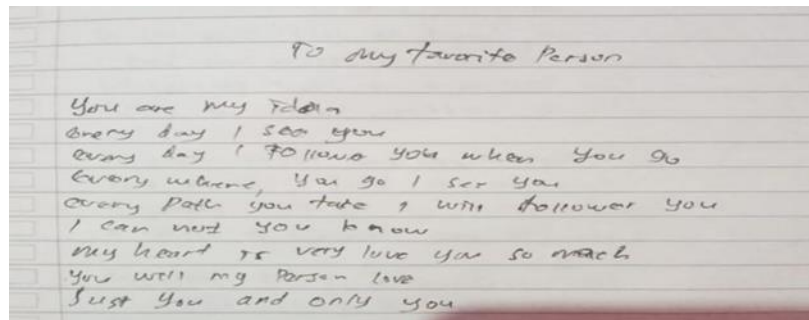 To my favorite Person
You are my
every day I see you
every day I Follow you when you go
Every where, you go I see you
every Path you take I will follower you
I can not you know
my heart is very love you so much
you will my Person love
Just you and only you